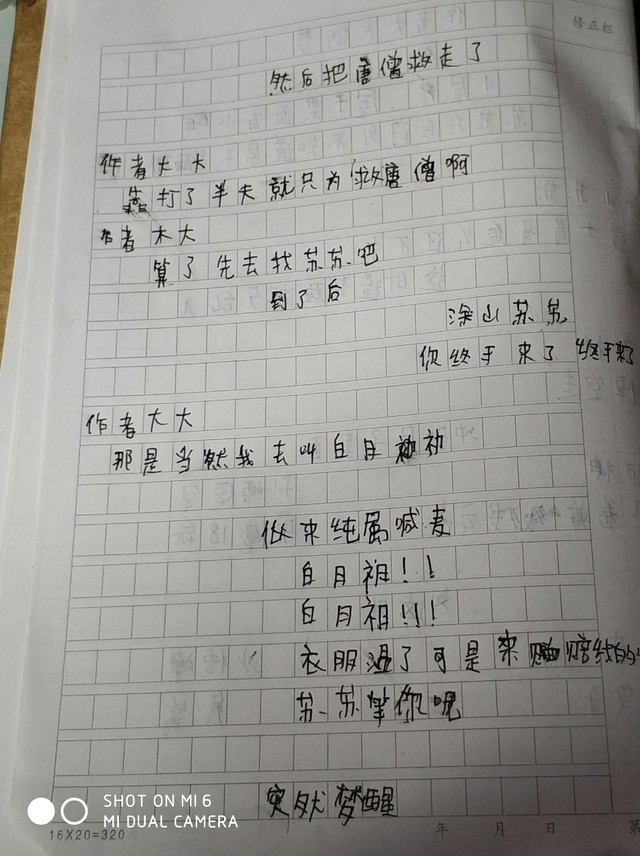 修正栏
然后把唐僧救走了
作者大大
打了半天就只为救唐僧啊
作者大大
算了先去找苏苏吧
到了后
涂山苏苏
你终于来了终于来了
作者大大
那是当然我去叫白月初
纯属喊麦
白月祖！！
白月祖！！！
衣服湿了可是来赔钱的
苏苏等你呢
突然梦醒
SHOT ON MI 6
MI DUAL CAMERA
16X20=320
年 月 日 第